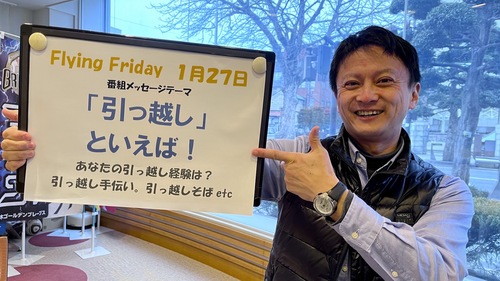 Flying Friday 1月27日
番組メッセージテーマ
「引っ越し」
といえば！
あなたの引っ越し経験は？
引っ越し手伝い。引っ越しそば etc
ゴールデンブレーブス